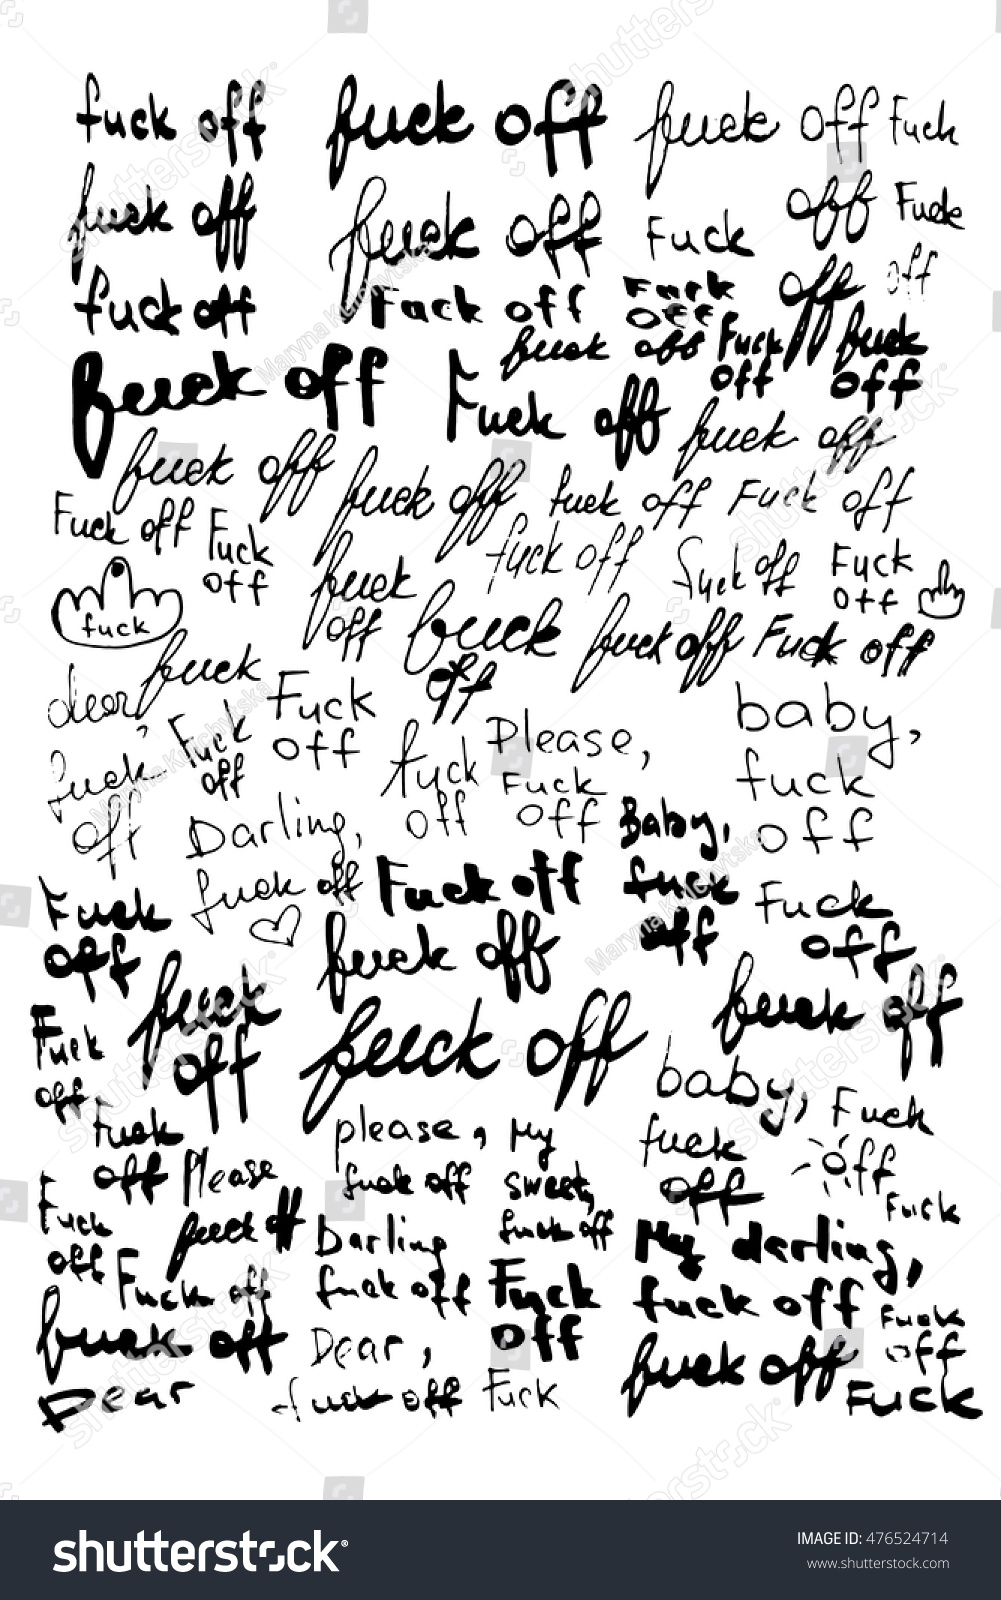 fuck off fuck off fuck off Fuck
fuck off fuck off Fuck off Fuck
fuck off Fuck off Fuck off off off
fuck off Fuck off fuck off
fuck off Fuck off fuck off
fuck off fuck off fuck off fuck off Fuck off
Fuck off Fuck off
fuck off fuck off fuck off Fuck off
fuck
fuck off fuck off Fuck off
dear, fuck off
fuck
Fuck off
Fuck off
fuck off
Please, Fuck off
baby, fuck off
Darling, fuck off
Fuck off
Baby, fuck off
Fuck off
Fuck off
fuck off
fuck off
fuck off
fuck off
Fuck off
baby, fuck off
Fuck off
Fuck off
Please fuck off
please, fuck off
My sweet, fuck off
Fuck off
Fuck off
Darling fuck off
Fuck off
My darling, fuck off
Fuck
fuck off
Dear, fuck off
Fuck off
fuck off
Dear
Fuck
Fuck
shutterstock
IMAGE ID: 476524714
www.shutterstock.com